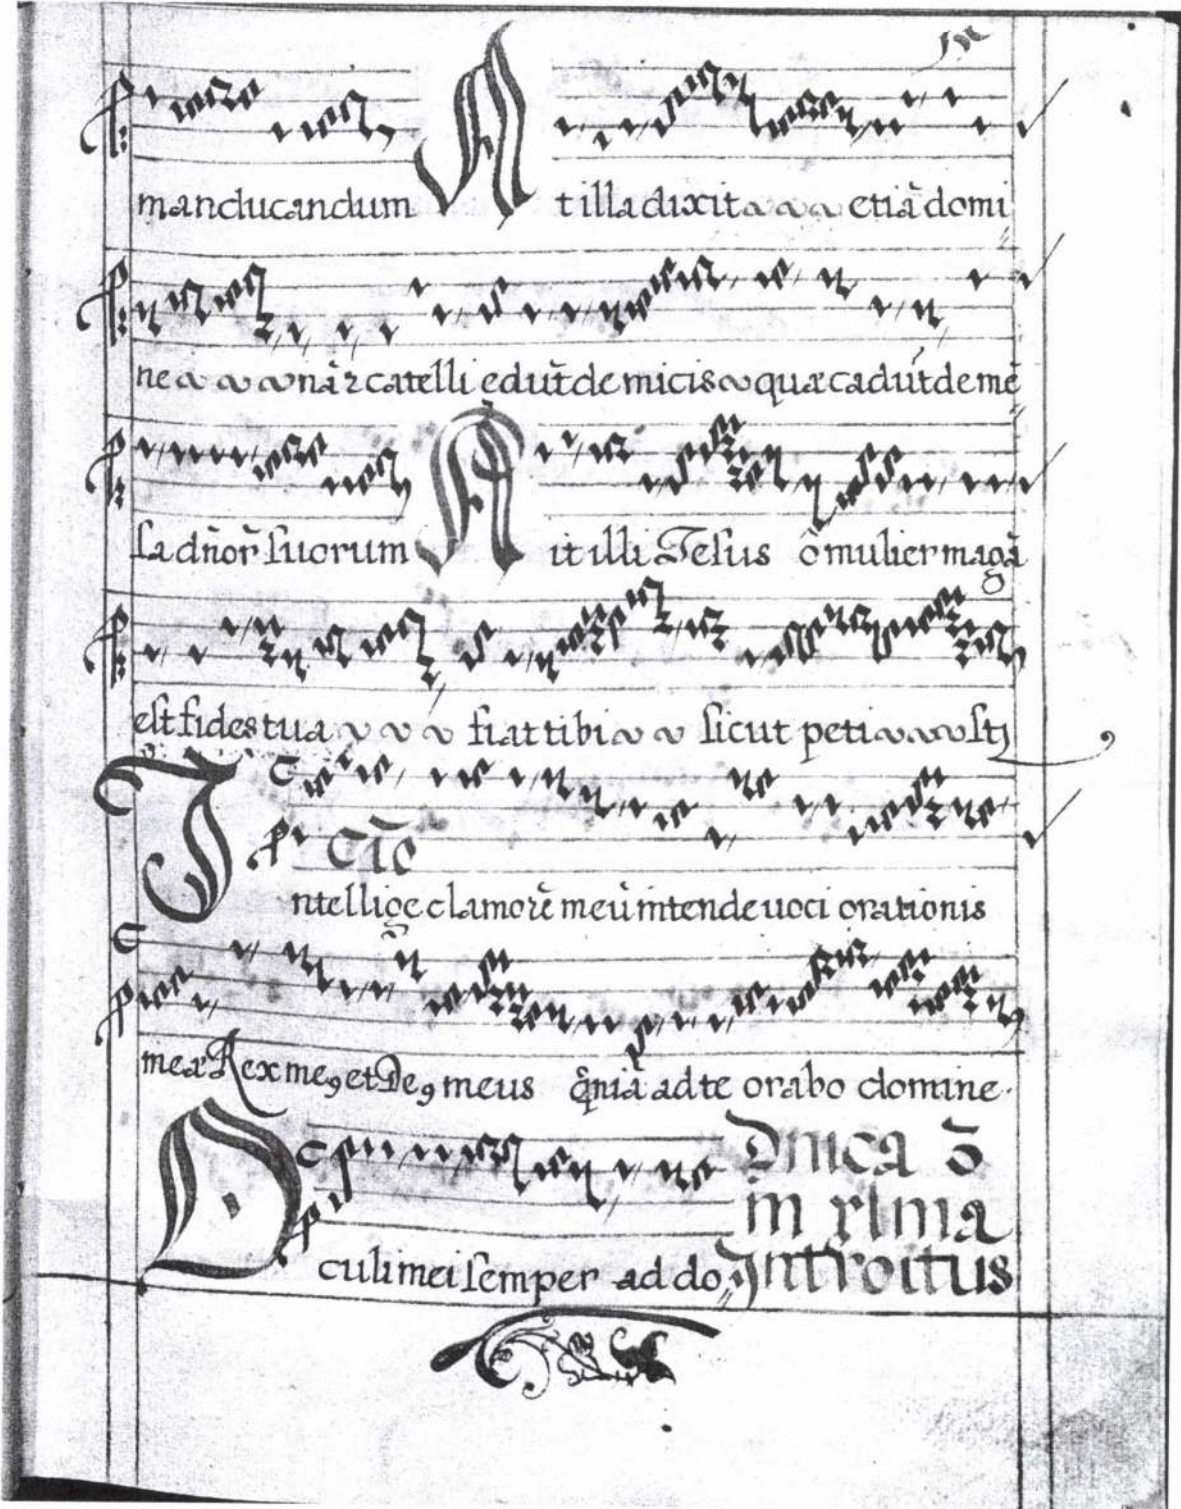 manducandum At illa dixit etiā domi
ne nā ⁊ catelli edūt de micis quæ cadūt de mē
sa dñor̃ suorum Ait illi Jesus õ mulier magā
est fides tua fiat tibi sicut petisti
Cīo
Intellige clamorē meū intende uoci orationis
meæ Rex meꝰ et Deꝰ meus q̃niā ad te orabo domine
Dnica 3̄
in xlma
Introitus
Oculi mei semper ad do